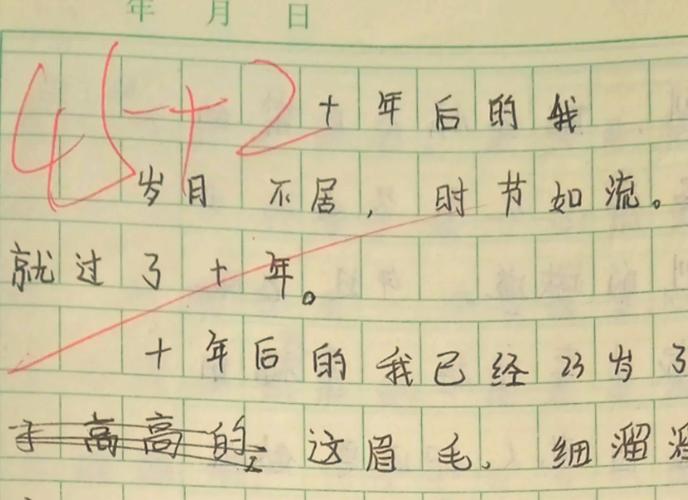 年 月 日
45+2
十年后的我
岁月不居，时节如流。
就过了十年。
十年后的我已经23岁了
高高的 这眉毛，细溜溜